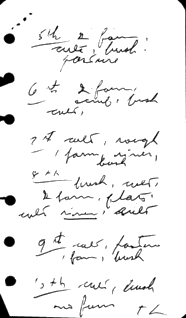 5th 2 farm,
cult, bush,
pasture
6th 2 farm,
scrub, bush
cult,
7th cult, rough
, farm, river,
bush
8th bush, cult,
2 farm, flats,
cult river, cult
9th cult, pasture
, farm, bush
10th cult, bush
no farm T L